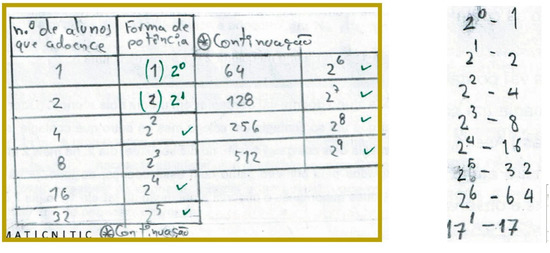 n.º de alunos que adoece
Forma de potência
⊛ Continuação
1 (1) 2⁰ 64 2⁶ ✓
2 (2) 2¹ 128 2⁷ ✓
4 2² ✓ 256 2⁸ ✓
8 2³ 512 2⁹ ✓
16 2⁴ ✓
32 2⁵ ✓
MATICNITIC ⊛ Continuação
2⁰ - 1
2¹ - 2
2² - 4
2³ - 8
2⁴ - 16
2⁵ - 32
2⁶ - 64
17¹ - 17